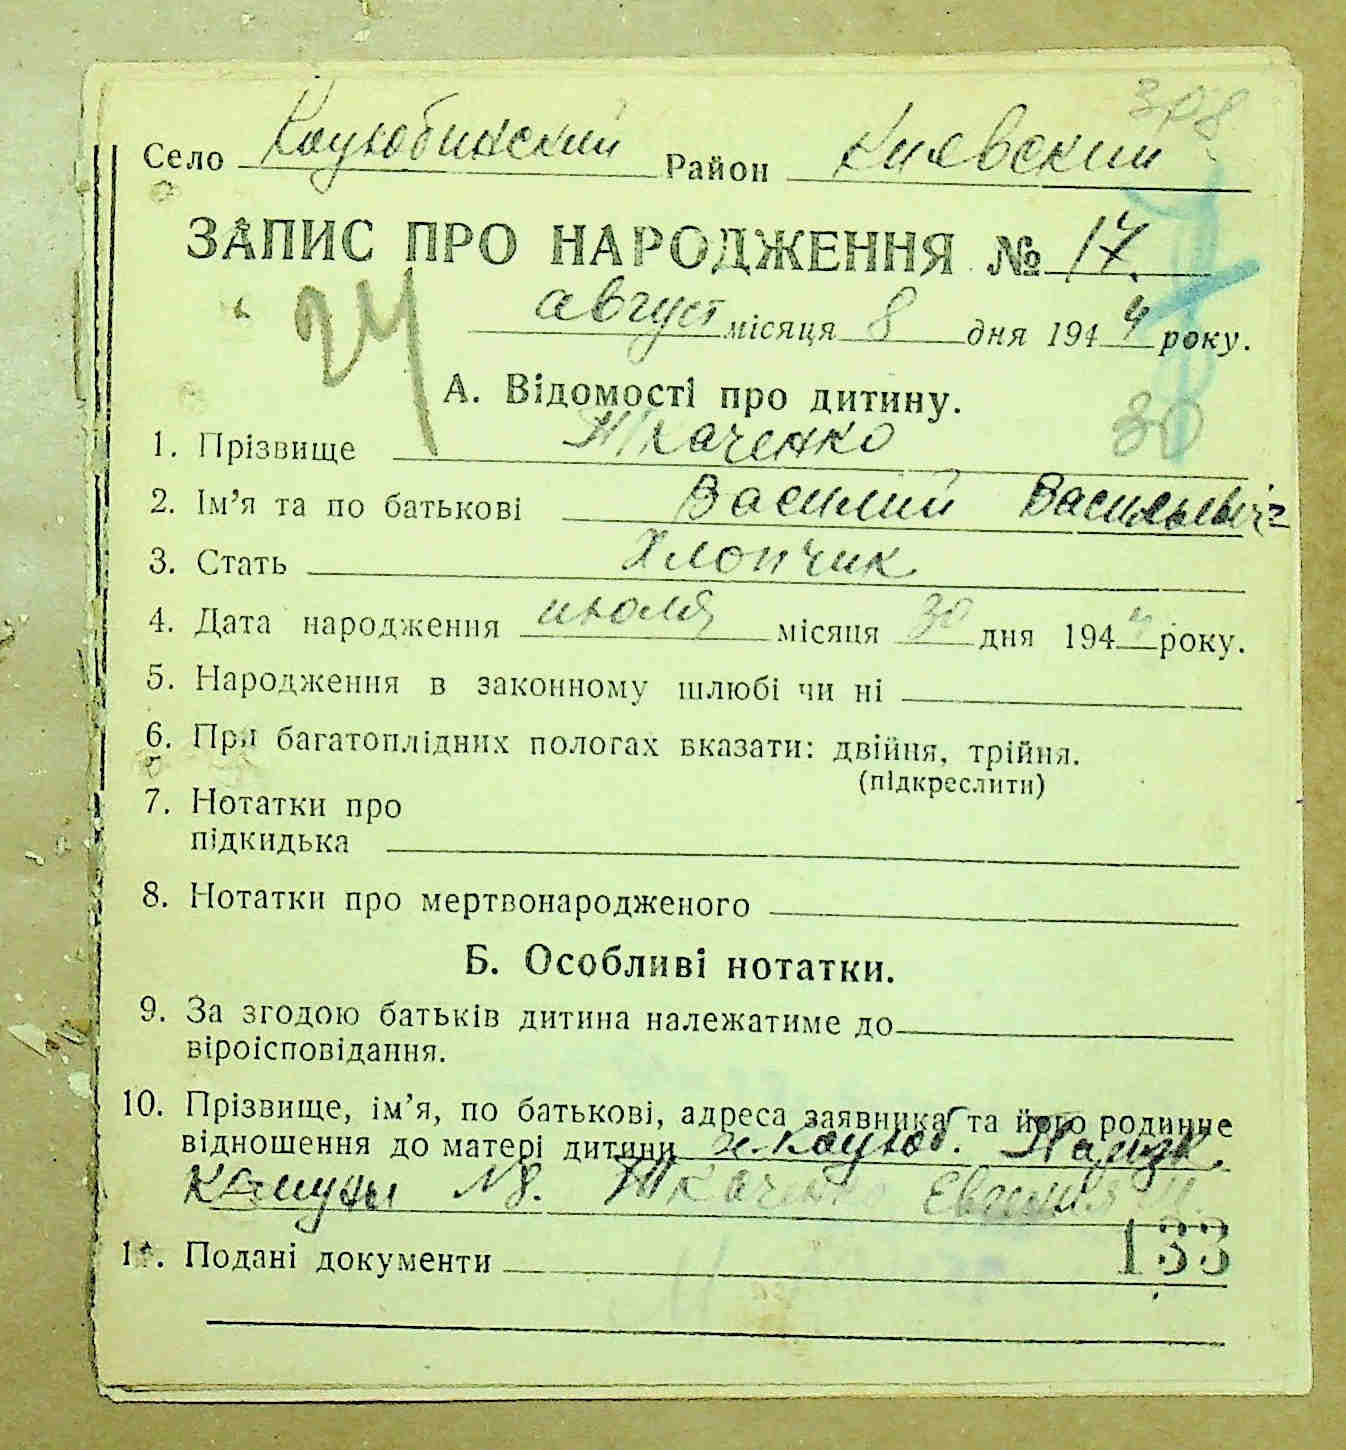 308
Село Коцюбинский Район Киевский
ЗАПИС ПРО НАРОДЖЕННЯ № 17.
24
август місяця 8 дня 1944 року.
А. Відомості про дитину.
80
1. Прізвище Ткаченко
2. Ім’я та по батькові Василий Васильевич
3. Стать Хлопчик
4. Дата народження июля місяця 30 дня 1944 року.
5. Народження в законному шлюбі чи ні
6. При багатоплідних пологах вказати: двійня, трійня.
(підкреслити)
7. Нотатки про
підкидька
8. Нотатки про мертвонародженого
Б. Особливі нотатки.
9. За згодою батьків дитина належатиме до
віроісповідання.
10. Прізвище, ім’я, по батькові, адреса заявника та його родинне
відношення до матері дитини Коцюб. Париж.
Комуны №8. Ткаченко Евгения
133
11. Подані документи